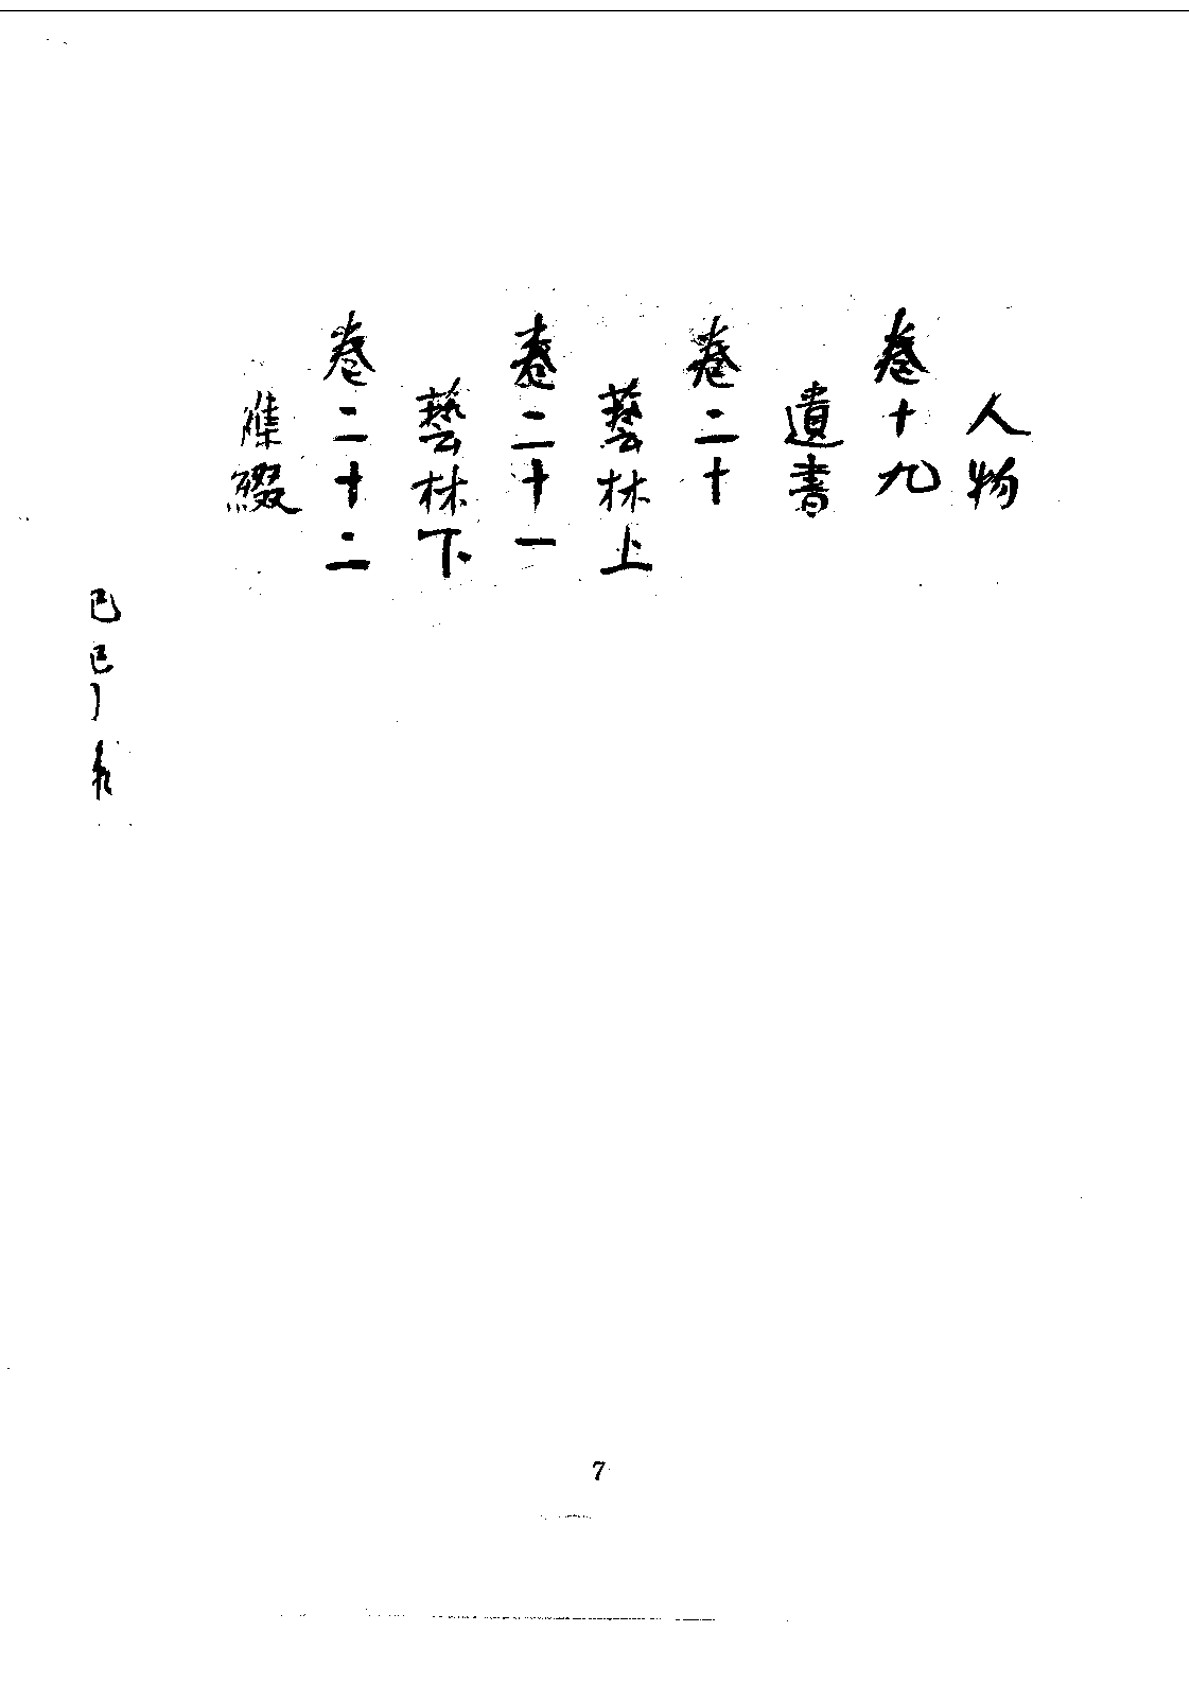 人物
卷十九
遺書
卷二十
藝林上
卷二十一
藝林下
卷二十二
綴
7